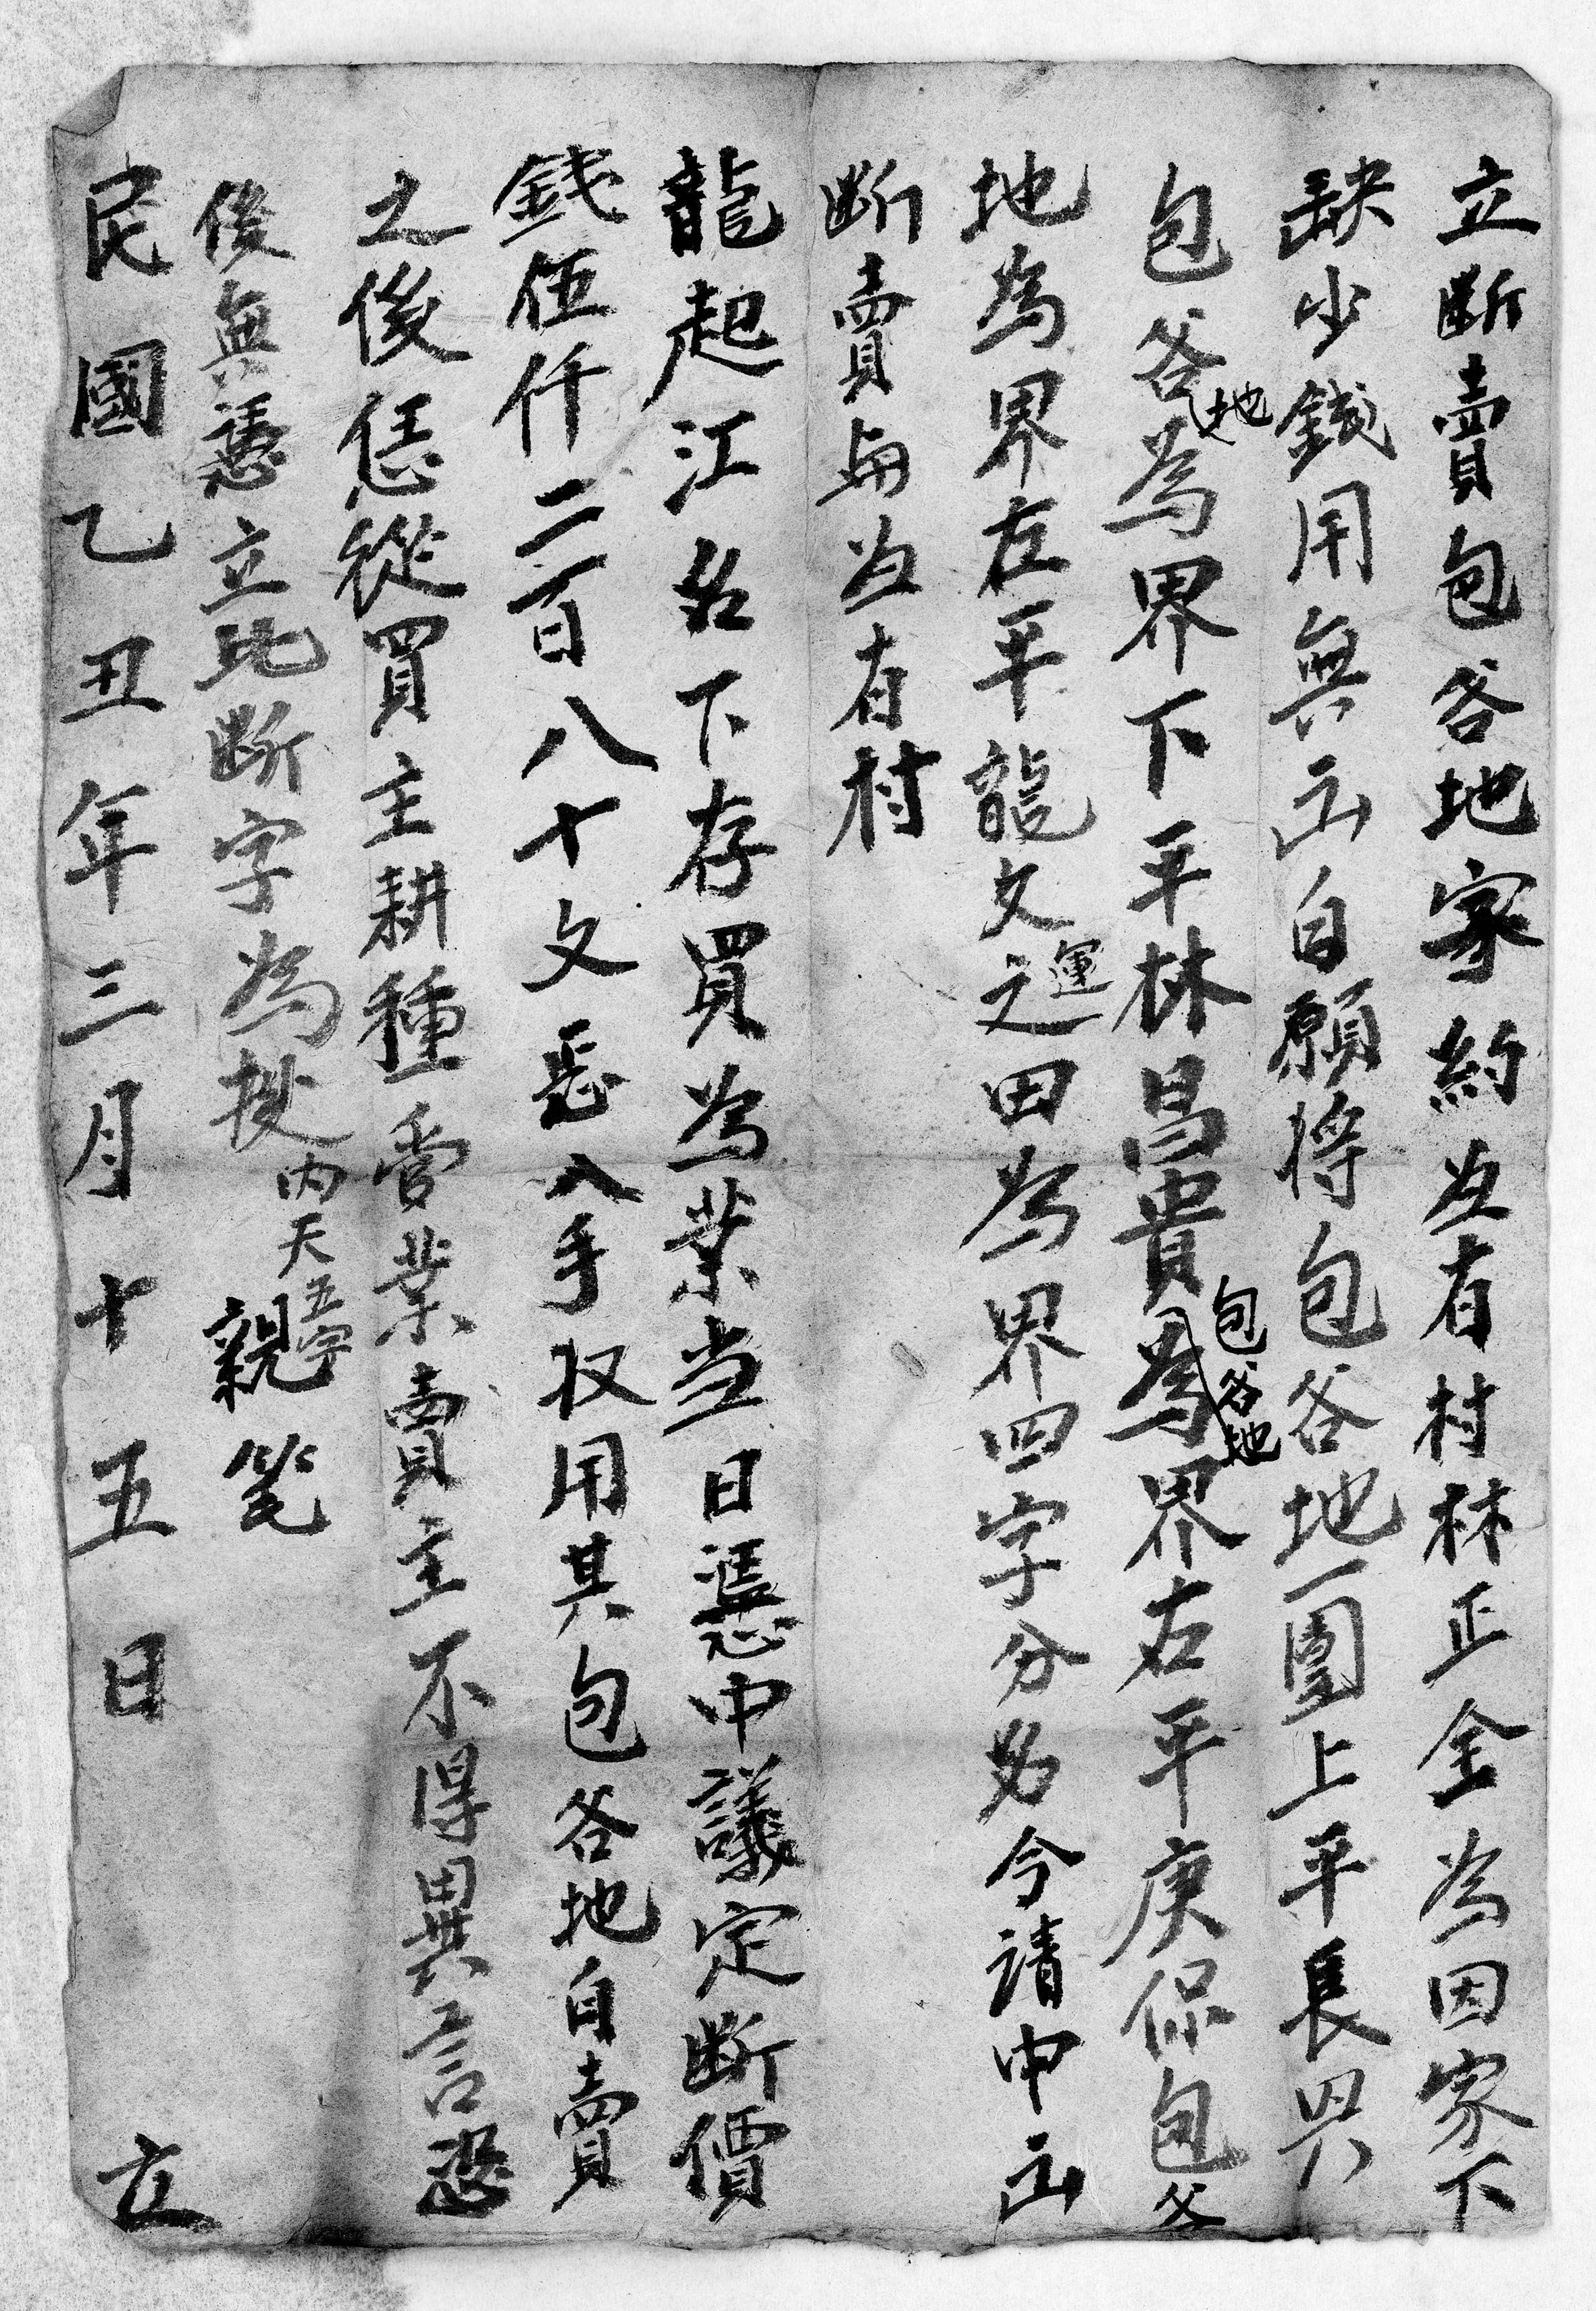 立断賣包谷地家約岜有村林正全為因家下
缺少錢用無出自願將包谷地一團上平長畀
包谷地為界下平林昌貴包谷地為界右平庚保包谷
地為界左平龍文運之田為界四字分明今請中出
断賣與岜有村
龍起江名下存買為業当日憑中議定断價
錢伍仟二百八十文親入手収用其包谷地自賣
之後恁從買主耕種管業賣主不得異言恐
後無憑立此断字為拠 内天五字 親筆
民國乙丑年三月十五日 立